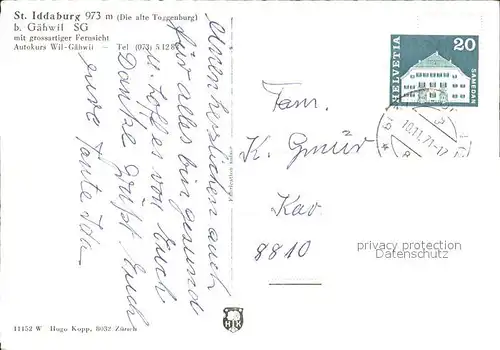 St. Iddaburg 973 m (Die alte Toggenburg)
b. Gähwil SG
mit grossartiger Fernsicht
Autokurs Wil-Gähwil — Tel (073) 5.12.82
Einen herzlichen auch
für alles bin gesund
u. hoffe es von Euch
Danke grüsst Euch
eure Tante Ida
Fam.
K. Gmür
Kav
8810
HELVETIA
20
SAMEDAN
10.11.71-12
privacy protection
Datenschutz
HK
11152 W Hugo Kopp, 8032 Zürich